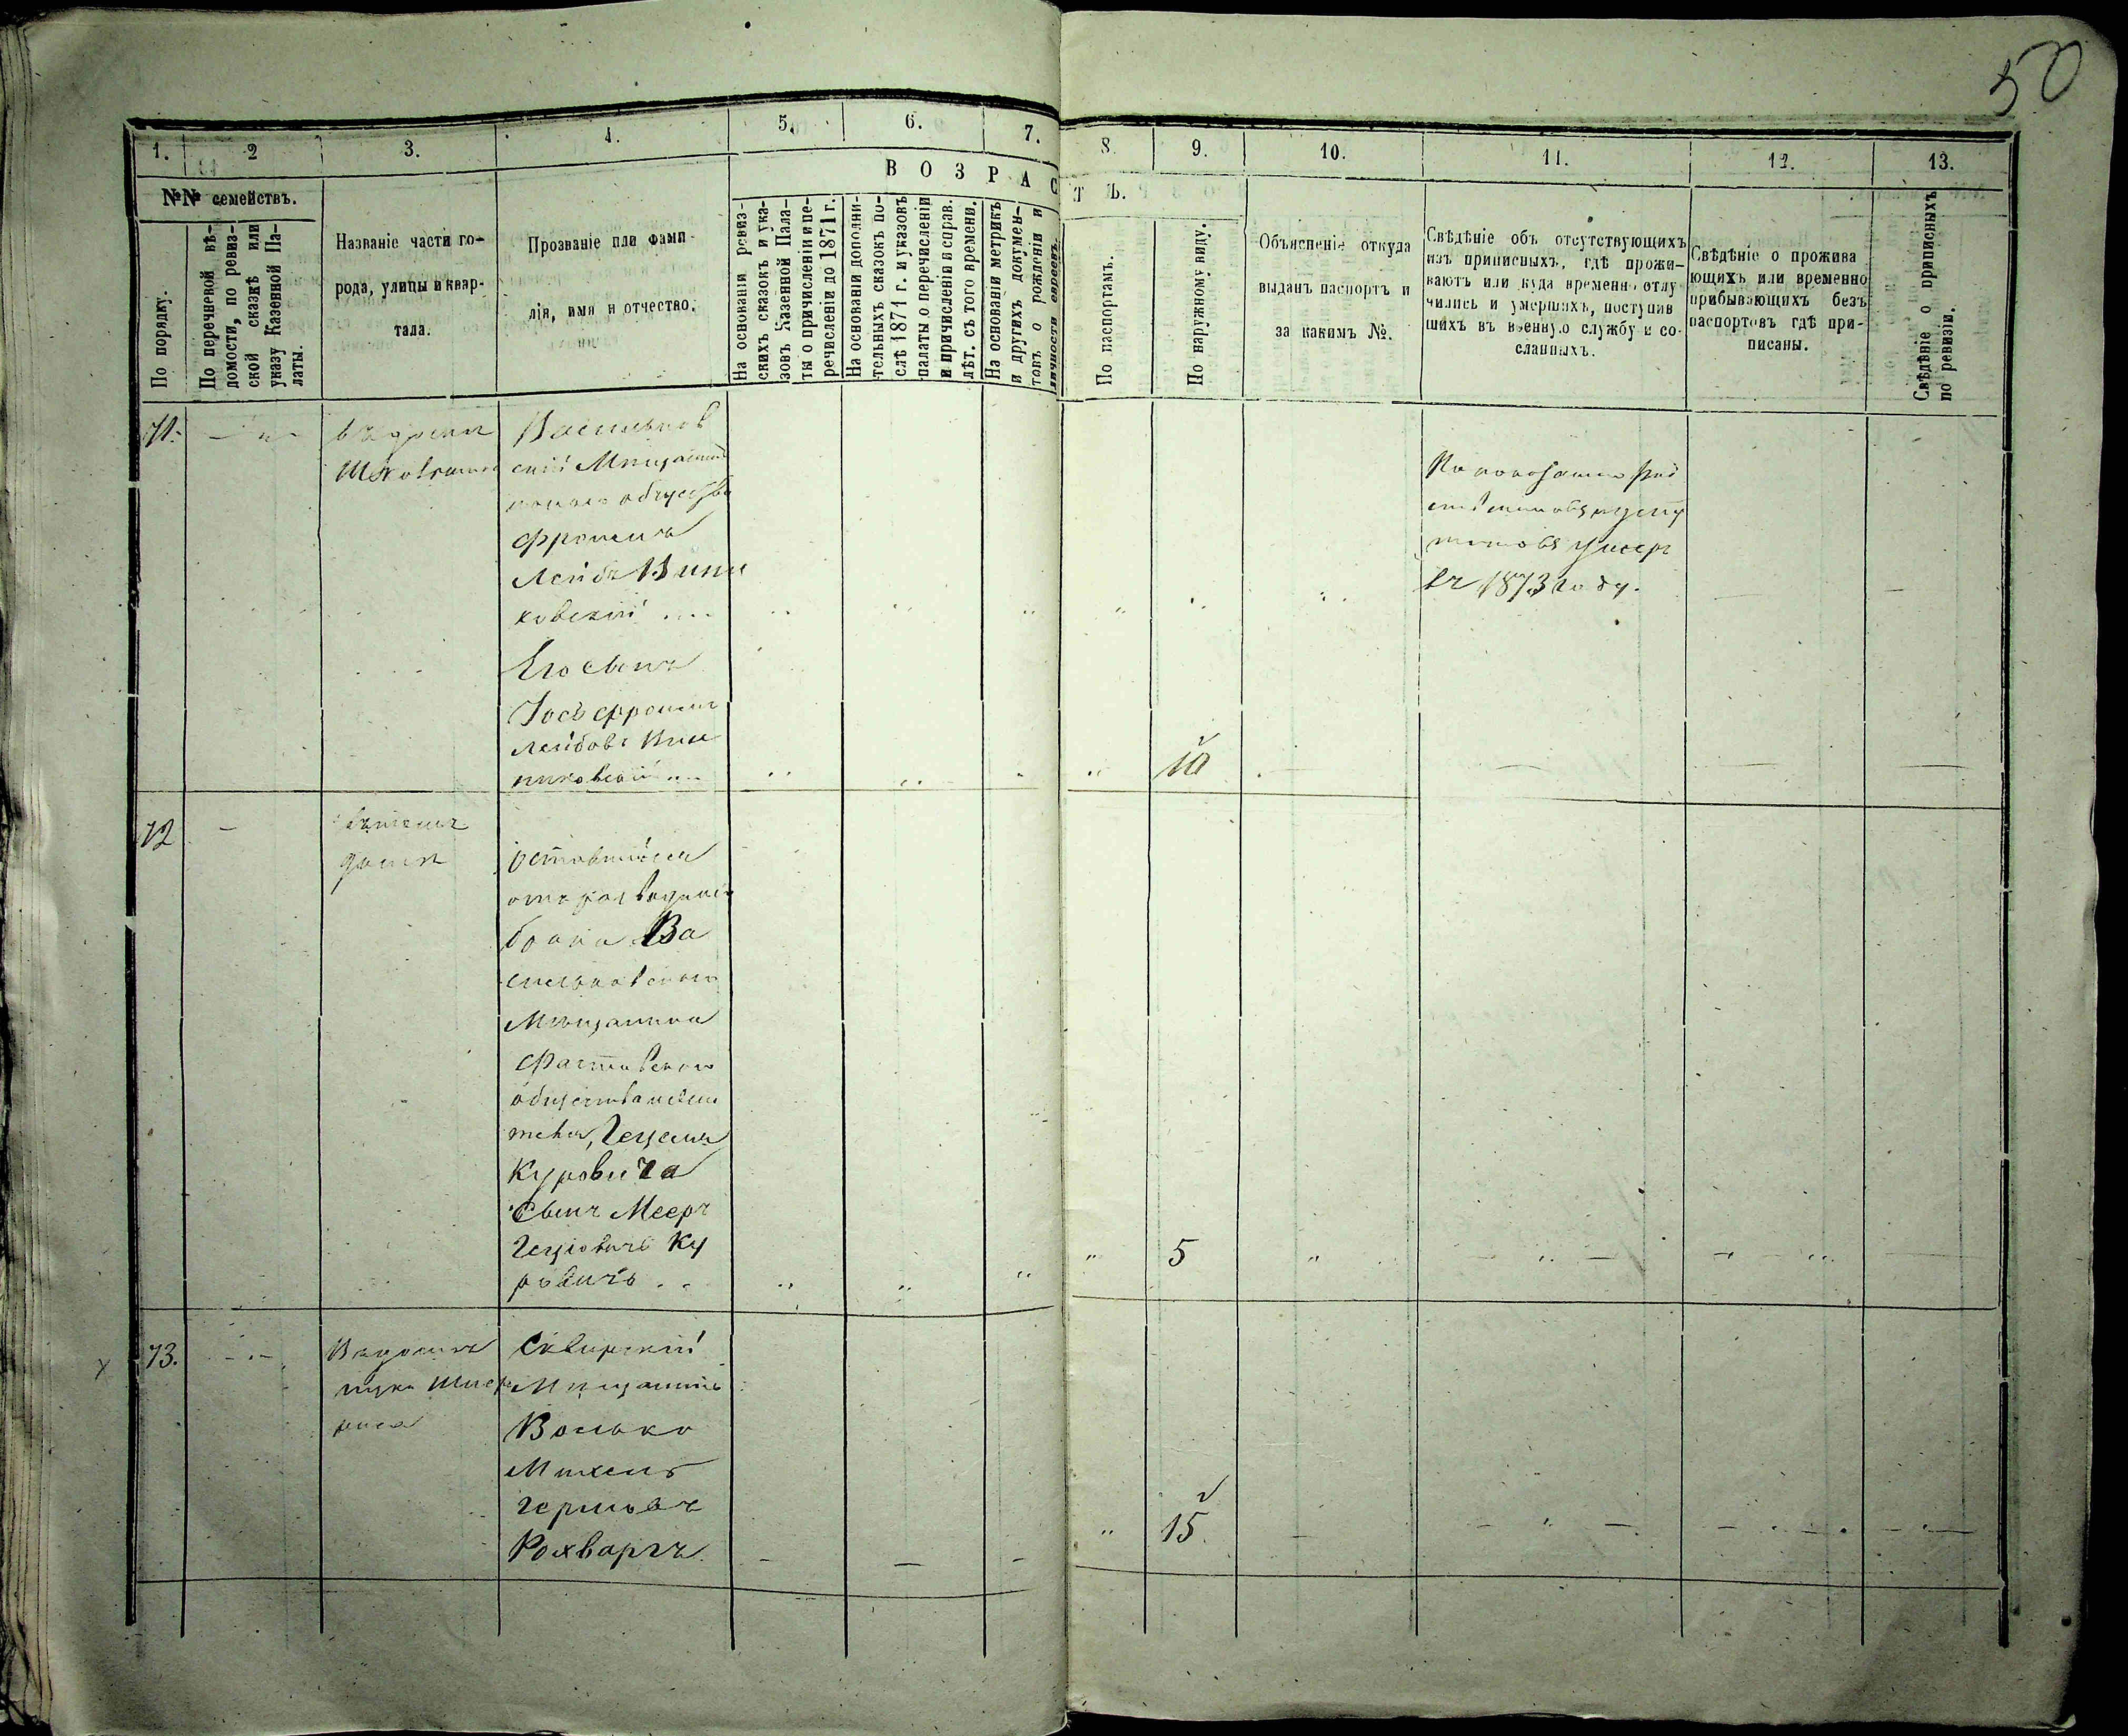 50
1. 2 3. 4. 5. 6. 7. 8. 9. 10. 11. 12. 13.
В О З Р А С Т Ъ.
№№ семействъ.
По порядку.
По перечневой вѣ-
домости, по ревиз-
ской сказкѣ или
указу Казенной Па-
латы.
Названіе части го-
рода, улицы и квар-
тала.
Прозваніе или фами-
лія, имя и отчество.
На основаніи ревиз-
скихъ сказокъ и ука-
зовъ Казенной Пала-
ты о причисленіи и пе-
речисленіи до 1871 г.
На основаніи дополни-
тельныхъ сказокъ по-
слѣ 1871 г. и указовъ
палаты о перечисленіи
и причисленіи и справ.
лѣт. съ того времени.
На основаніи метрикъ
и другихъ докумен-
товъ о рожденіи и
личности евреевъ.
По паспортамъ.
По наружному виду.
Объясненіе откуда
выданъ паспортъ и
за какимъ №.
Свѣдѣніе объ отсутствующихъ
изъ приписныхъ, гдѣ прожи-
ваютъ или куда временно отлу
чились и умершихъ, поступив
шихъ въ военную службу и со-
сланныхъ.
Свѣдѣніе о прожива
ющихъ или временно
прибывающихъ безъ
паспортовъ гдѣ при-
писаны.
Свѣдѣніе о приписныхъ
по ревизіи.
71.
Васильков
скій Мещанин
общества
Фроимъ
Лейбъ Вини
ковскій
Его сынъ
Іосъ Фроимъ
Лейбовъ Вин
никовскій
10
умеръ
въ 1873 году.
72
домѣ
оставшійся
отъ
брака Ва
сильковскаго
Мещанина
Фастовскаго
общества
Гецеля
Куровича
Сынъ Мееръ
Гецовичъ Ку
ровичъ
5
73.
Сквирскій
Мещанинъ
Волько
Михель
Гершовъ
Рохваргъ
15